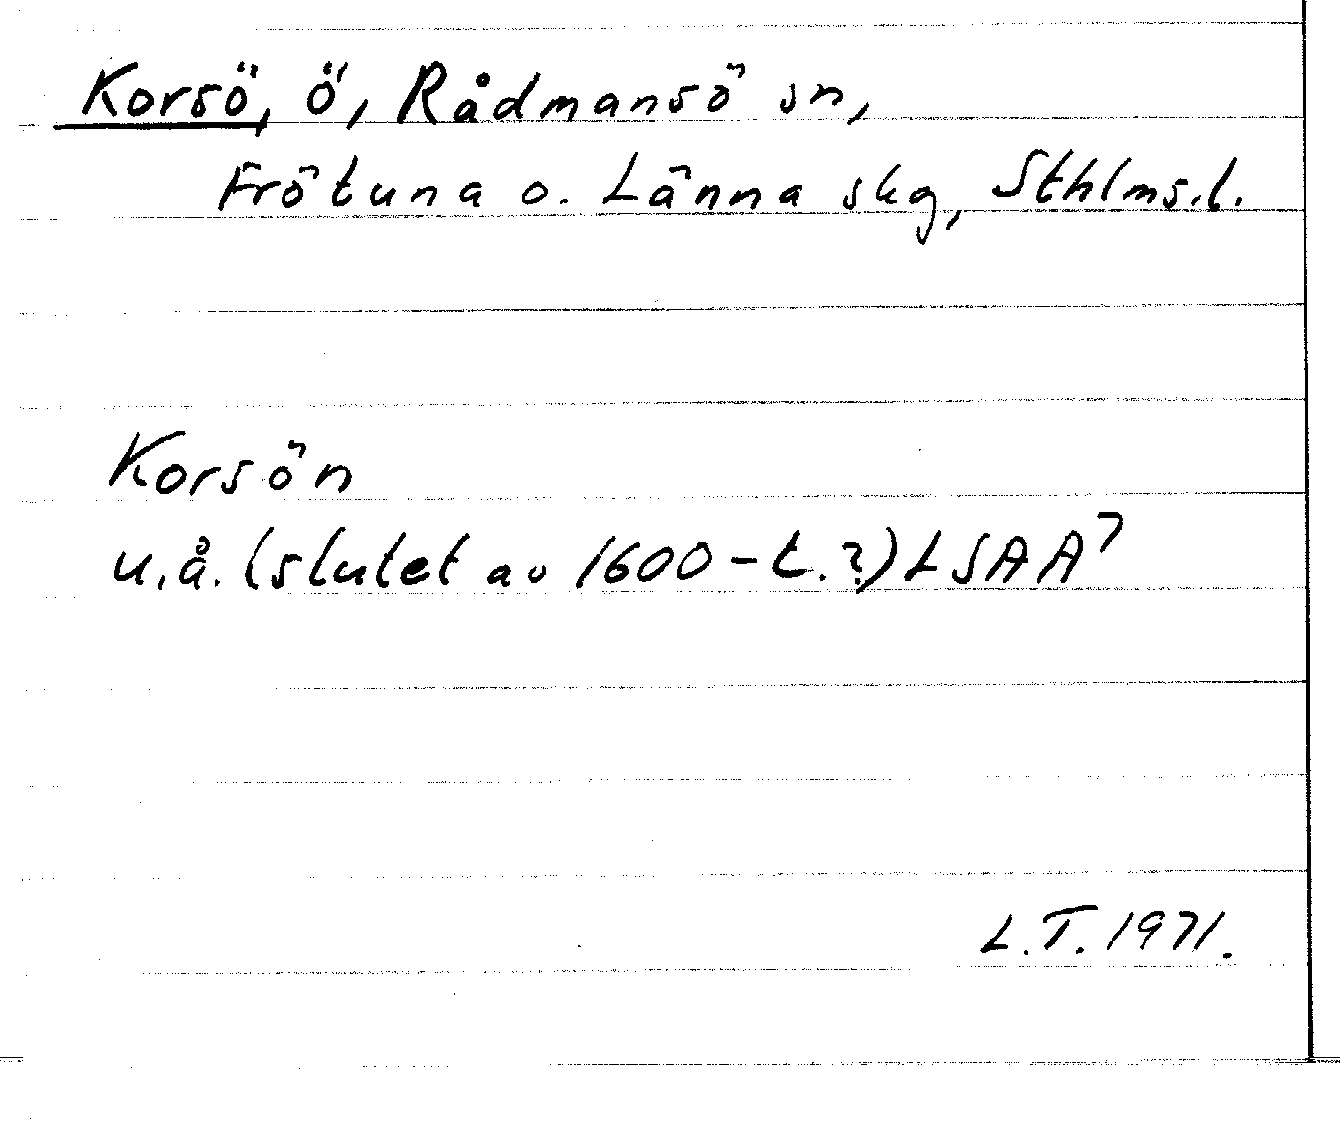 Korsö, ö, Rådmansö sn,
Frötuna o. Länna skg, Sthlms.l.
Korsön
u.å. (slutet av 1600-t.?) LSAA7
L.T. 1971.